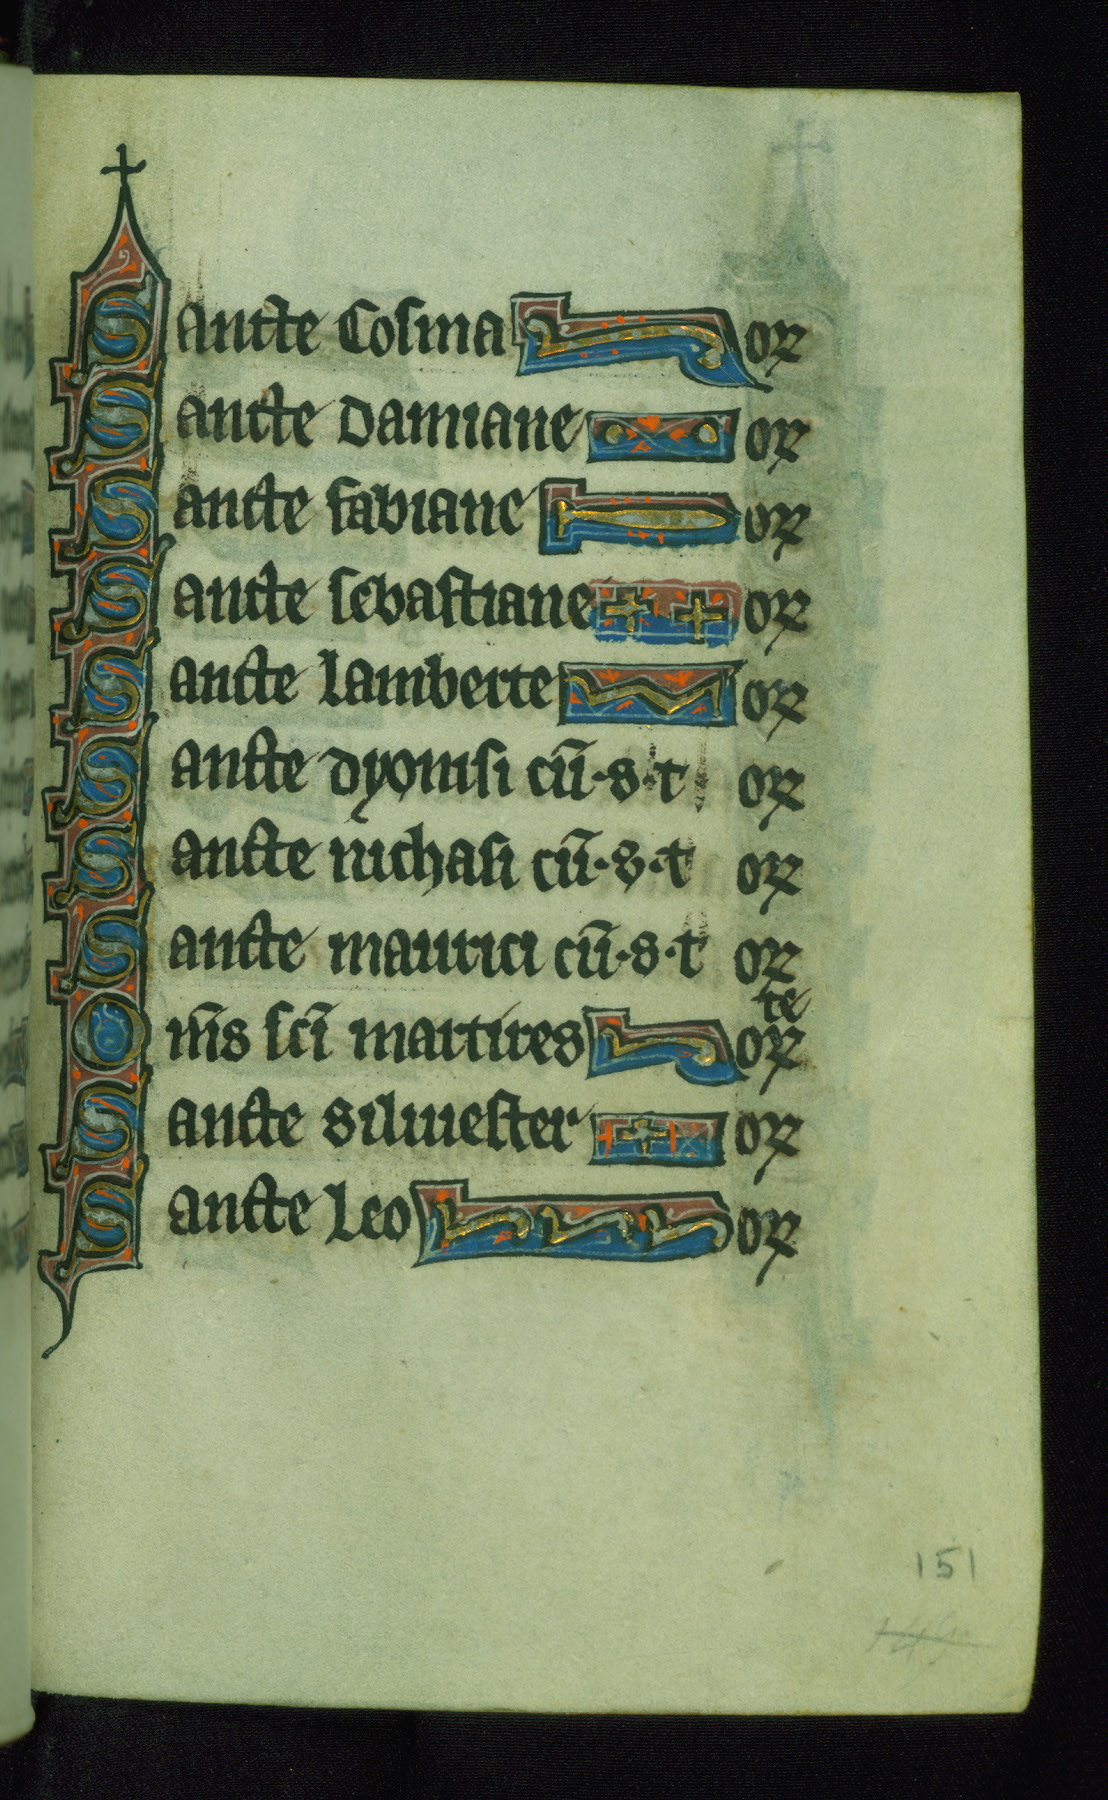 Sancte Cosma or
Sancte damiane or
Sancte fabiane or
Sancte sebastiane or
Sancte lamberte or
Sancte dyonisi cū·s·t or
Sancte nichasi cū·s·t or
Sancte maurici cū·s·t or
te
Om̄s sc̄i martires or
Sancte siluester or
Sancte Leo or
151